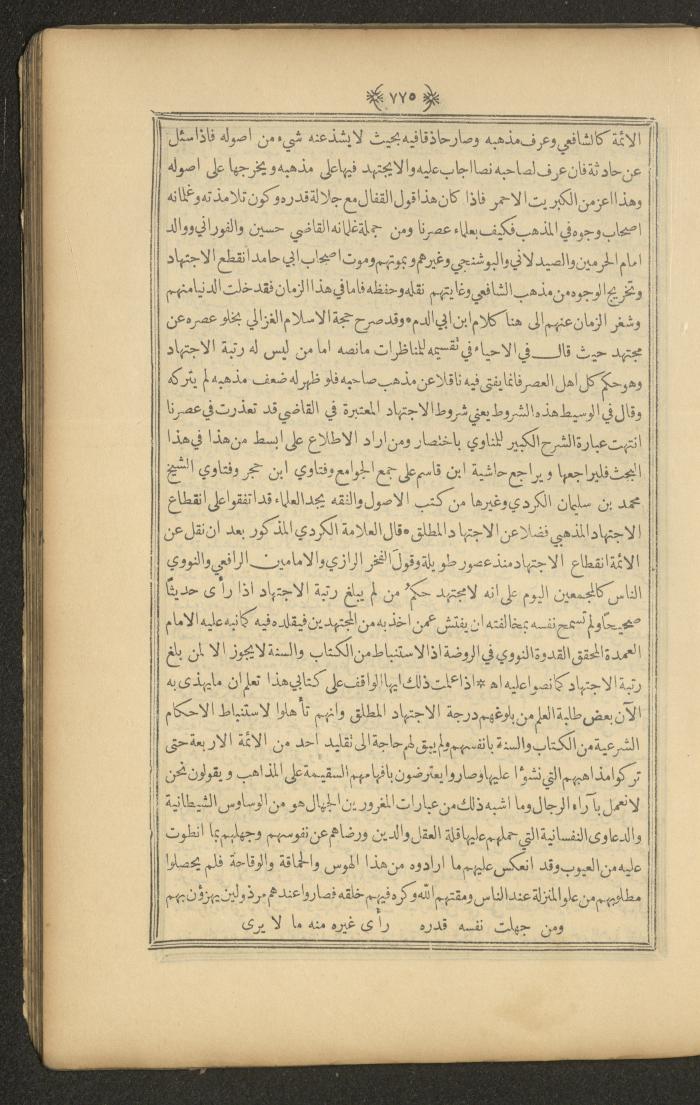 ٧٧٥
الائمة كالشافعي وعرف مذهبه وصار حاذقا فيه بحيث لا يشذ عنه شيء من اصوله فاذا سئل
عن حادثة فان عرف لصاحبه نصا اجاب عليه والا يجتهد فيها على مذهبه ويخرجها على اصوله
وهذا اعز من الكبريت الاحمر فاذا كان هذا قول القفال مع جلالة قدره وكون تلامذته وغلمانه
اصحاب وجوه في المذهب فكيف بعلماء عصرنا ومن جملة غلمانه القاضي حسين والفوراني ووالد
امام الحرمين والصيدلاني والبوشنجي وغيرهم وبموتهم وموت اصحاب ابي حامد انقطع الاجتهاد
وتخريج الوجوه من مذهب الشافعي وغايتهم نقله وحفظه فاما في هذا الزمان فقد خلت الدنيا منهم
وشغر الزمان عنهم الى هنا كلام ابن ابي الدم * وقد صرح حجة الاسلام الغزالي بخلو عصره عن
مجتهد حيث قال في الاحياء في تقسيمه للمناظرات ما نصه اما من ليس له رتبة الاجتهاد
وهو حكم كل اهل العصر فانما يفتى فيه ناقلا عن مذهب صاحبه فلو ظهر له ضعف مذهبه لم يتركه
وقال في الوسيط هذه الشروط يعني شروط الاجتهاد المعتبرة في القاضي قد تعذرت في عصرنا
انتهت عبارة الشرح الكبير للمناوي باختصار ومن اراد الاطلاع على ابسط من هذا في هذا
البحث فليراجعها ويراجع حاشية ابن قاسم على جمع الجوامع وفتاوي ابن حجر وفتاوي الشيخ
محمد بن سليمان الكردي وغيرها من كتب الاصول والفقه يجد العلماء قد اتفقوا على انقطاع
الاجتهاد المذهبي فضلا عن الاجتهاد المطلق * قال العلامة الكردي المذكور بعد ان نقل عن
الائمة انقطاع الاجتهاد منذ عصور طويلة وقول الفخر الرازي والامامين الرافعي والنووي
الناس كالمجمعين اليوم على انه لا مجتهد حكمُ من لم يبلغ رتبة الاجتهاد اذا رأى حديثًا
صحيحًا ولم تسمح نفسه بمخالفته ان يفتش عمن اخذ به من المجتهدين فيقلده فيه كما نبه عليه الامام
العمدة المحقق القدوة النووي في الروضة اذ الاستنباط من الكتاب والسنة لا يجوز الا لمن بلغ
رتبة الاجتهاد كما نصوا عليه اه * اذا علمت ذلك ايها الواقف على كتابي هذا تعلم ان ما يهذى به
الآن بعض طلبة العلم من بلوغهم درجة الاجتهاد المطلق وانهم تأهلوا لاستنباط الاحكام
الشرعية من الكتاب والسنة بانفسهم ولم يبق لهم حاجة الى تقليد احد من الائمة الاربعة حتى
تركوا مذاهبهم التي نشؤا عليها وصاروا يعترضون بافهامهم السقيمة على المذاهب ويقولون نحن
لا نعمل بآراء الرجال وما اشبه ذلك من عبارات المغرورين الجهال هو من الوساوس الشيطانية
والدعاوى النفسانية التي حملهم عليها قلة العقل والدين ورضاهم عن نفوسهم وجهلهم بما انطوت
عليه من العيوب وقد انعكس عليهم ما ارادوه من هذا الهوس والحماقة والوقاحة فلم يحصلوا
مطلوبهم من علو المنزلة عند الناس ومقتهم الله وكره فيهم خلقه فصاروا عندهم مرذولين يهزؤن بهم
ومن جهلت نفسه قدره رأى غيره منه ما لا يرى